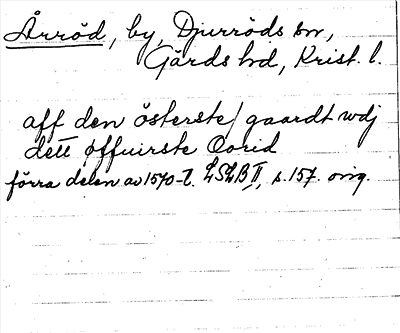 Årröd, by, Djurröds sn,
Gärds hd, Krist. l.
aff den österste/ gaardt wdj
dett øffuirste Oorid
förra delen av 1570-t. LSLB II, s. 157. orig.